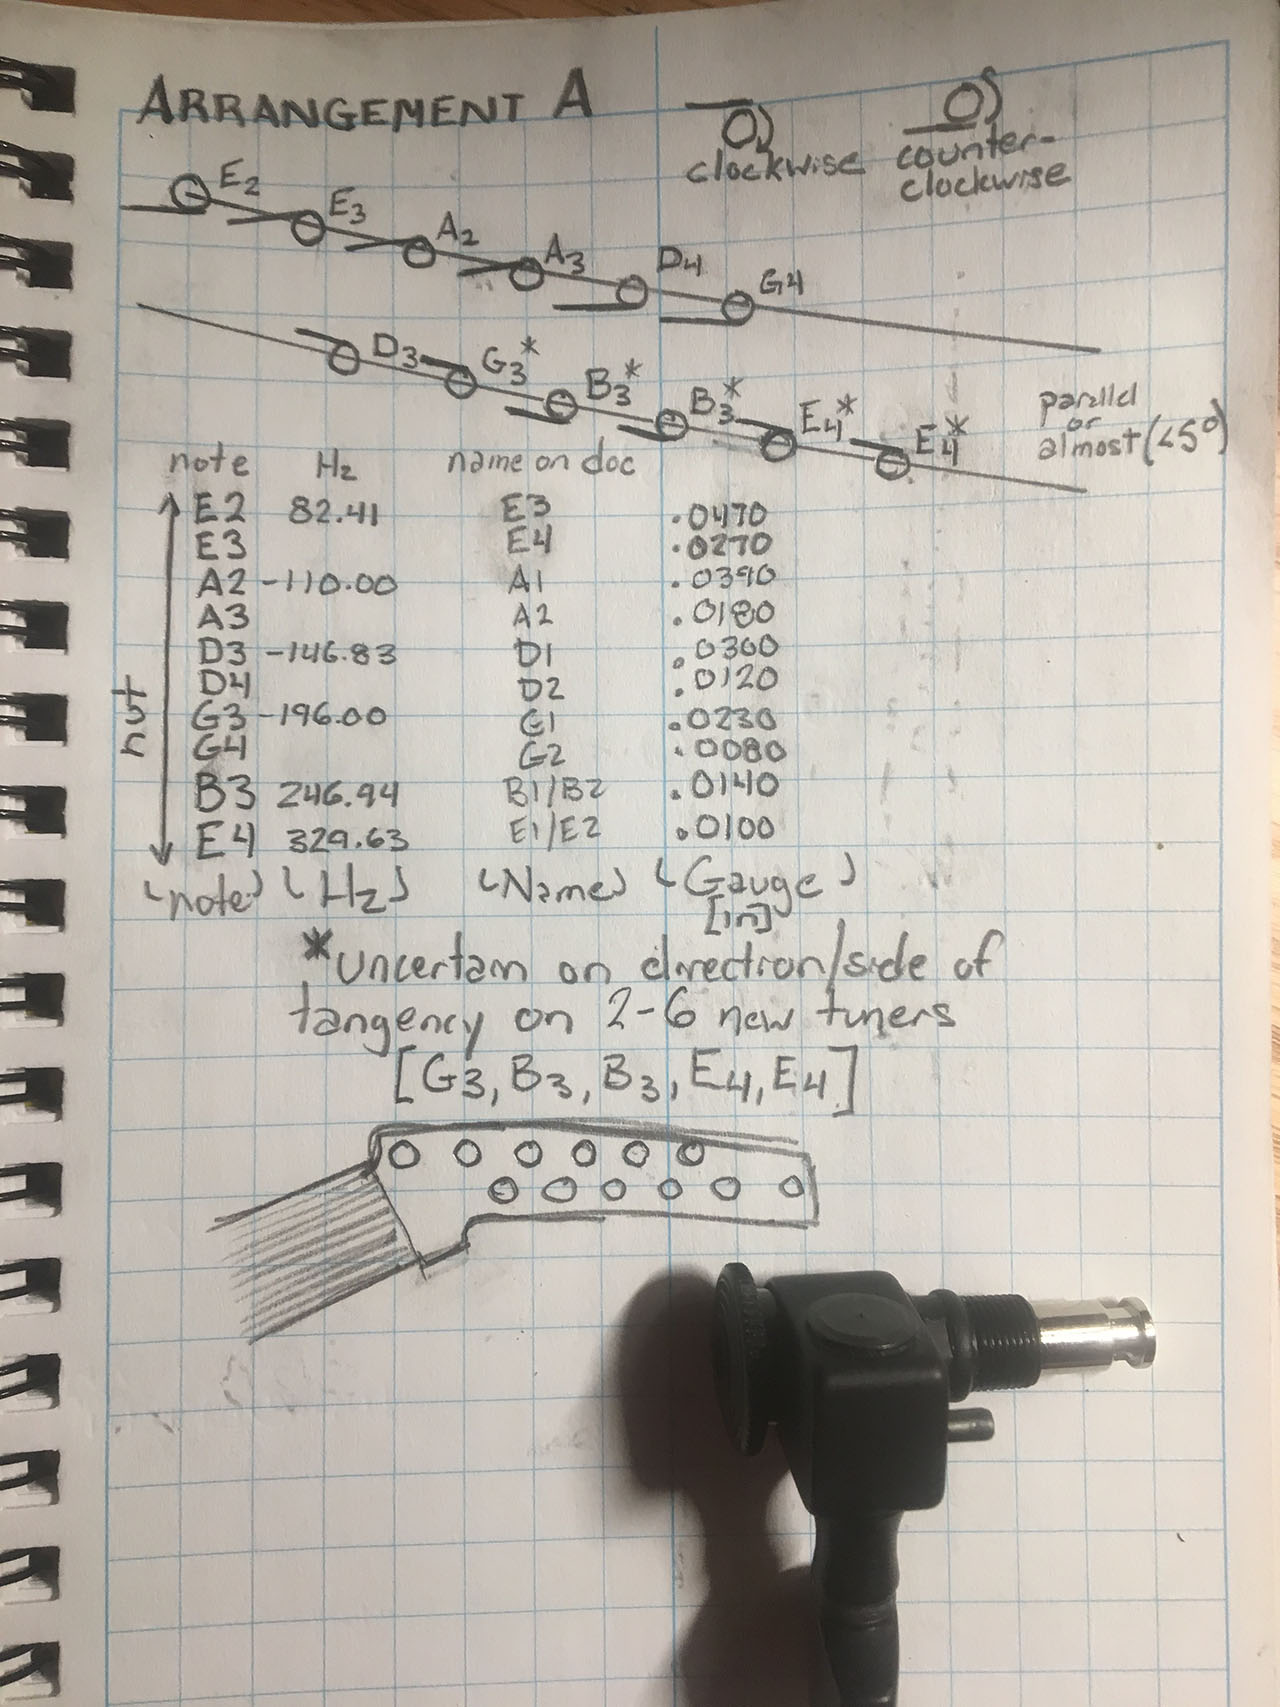 ARRANGEMENT A
clockwise
counter-
clockwise
E2
E3
A2
A3
D4
G4
D3
G3*
B3*
B3*
E4*
E4*
parallel
or
almost (<5°)
note Hz name on doc
E2 82.41 E3 .0470
E3 E4 .0270
A2 -110.00 A1 .0390
A3 A2 .0180
D3 -146.83 D1 .0300
D4 D2 .0120
G3 -196.00 G1 .0230
G4 G2 .0080
B3 246.94 B1/B2 .0140
E4 329.63 E1/E2 .0100
nut
(note) (Hz) (Name) (Gauge)
[in]
*uncertain on direction/side of
tangency on 2-6 new tuners
[G3, B3, B3, E4, E4]